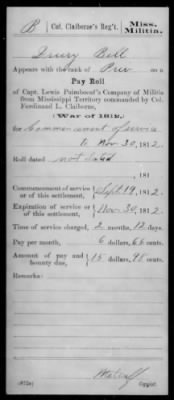 B | Col. Claiborne's Reg't. | Miss. Militia.
Drury Bell
Appears with the rank of Priv on a
Pay Roll
of Capt. Lewis Paimboeuf's Company of Militia
from Mississippi Territory commanded by Col.
Ferdinand L. Claiborne,
(War of 1812,)
for Commencement of service
to Nov 30, 1812.
Roll dated not dated
, 181 .
Commencement of service or of this settlement, } Sept 19, 1812.
Expiration of service or of this settlement, } Nov 30, 1812.
Time of service charged, 2 months, 12 days.
Pay per month, 6 dollars, 66 cents.
Amount of pay and bounty due, } 15 dollars, 98 cents.
Remarks:
Metcalf
Copyist.